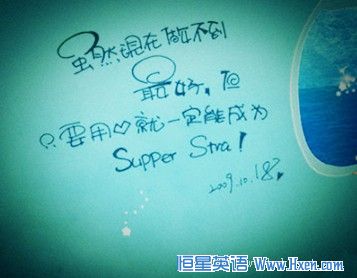 虽然现在做不到
最好,但
只要用♡就一定能成为
Supper Stra!
2009.10.18
恒星英语 - Www.Hxen.com